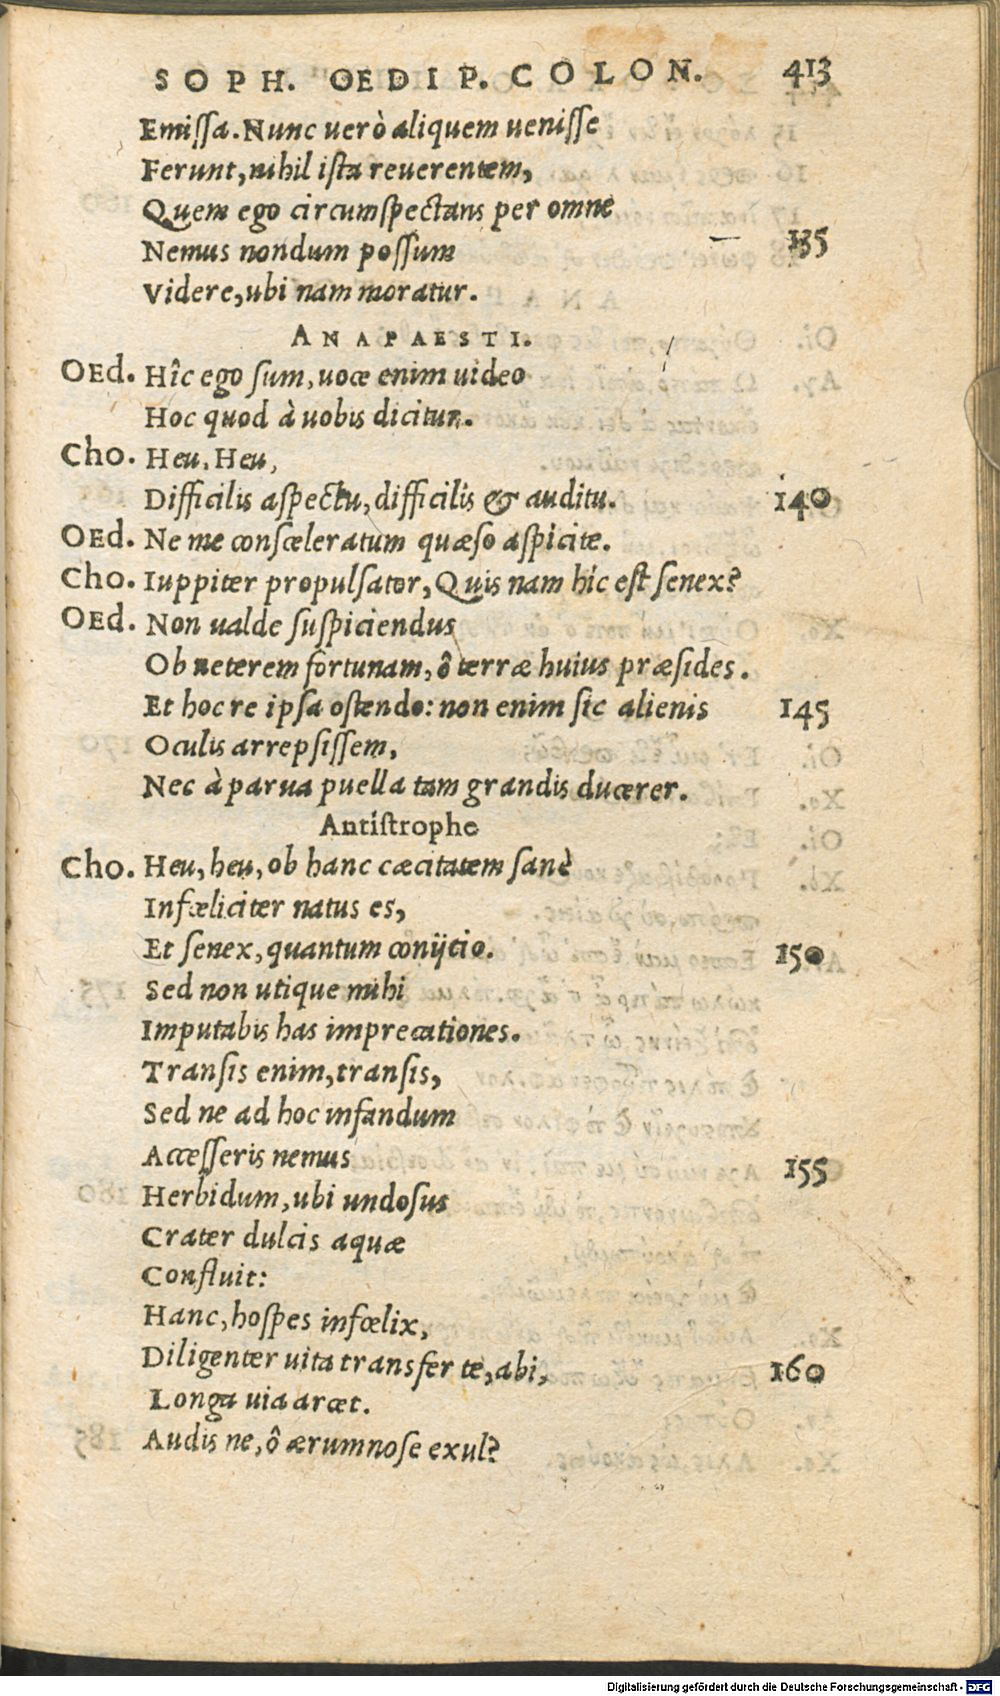 SOPH. OEDIP. COLON. 413
Emissa. Nunc uerò aliquem uenisse
Ferunt, nihil ista reuerentem,
Quem ego circumspectans per omne
Nemus nondum possum 135
Videre, ubi nam moratur.
ANAPAESTI.
OEd. Hîc ego sum, uoce enim uideo
Hoc quod à uobis dicitur.
Cho. Heu, Heu,
Difficilis aspectu, difficilis & auditu. 140
OEd. Ne me consceleratum quæso aspicite.
Cho. Iuppiter propulsator, Quis nam hîc est senex?
OEd. Non ualde suspiciendus
Ob ueterem fortunam, ô terræ huius præsides.
Et hoc re ipsa ostendo: non enim sic alienis 145
Oculis arrepsissem,
Nec à parua puella tam grandis ducerer.
Antistrophe
Cho. Heu, heu, ob hanc cæcitatem sanè
Infœliciter natus es,
Et senex, quantum conijcio. 150
Sed non utique mihi
Imputabis has imprecationes.
Transis enim, transis,
Sed ne ad hoc infandum
Accesseris nemus 155
Herbidum, ubi undosus
Crater dulcis aquæ
Confluit:
Hanc, hospes infœlix,
Diligenter uita transfer te, abi, 160
Longa uia arcet.
Audis ne, ô ærumnose exul?
Digitalisierung gefördert durch die Deutsche Forschungsgemeinschaft - DFG